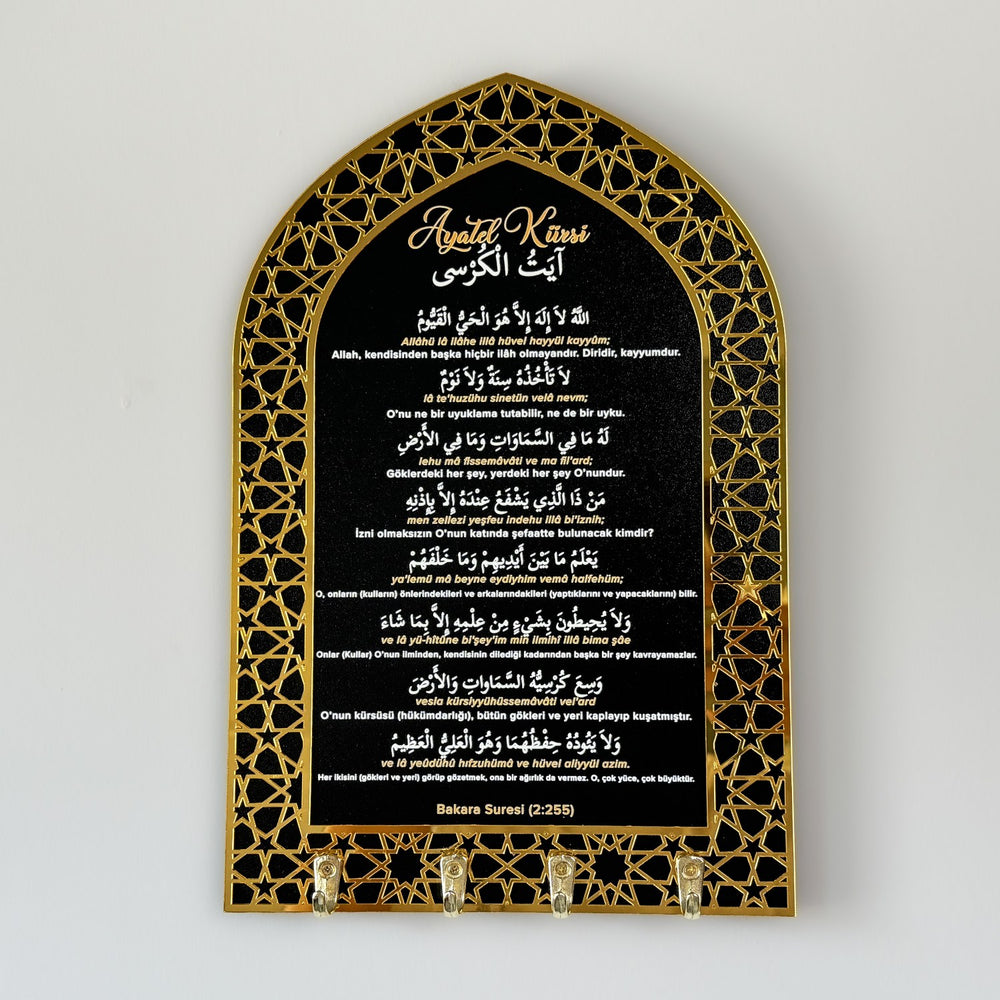 Ayatel Kürsi
آيَتُ الْكُرْسى
اللَّهُ لاَ إِلَهَ إِلاَّ هُوَ الْحَيُّ الْقَيُّومُ
Allâhü lâ ilâhe illâ hüvel hayyül kayyûm;
Allah, kendisinden başka hiçbir ilâh olmayandır. Diridir, kayyumdur.
لاَ تَأْخُذُهُ سِنَةٌ وَلاَ نَوْمٌ
lâ te'huzühu sinetün velâ nevm;
O’nu ne bir uyuklama tutabilir, ne de bir uyku.
لَهُ مَا فِي السَّمَاوَاتِ وَمَا فِي الأَرْضِ
lehu mâ fissemâvâti ve ma fil'ard;
Göklerdeki her şey, yerdeki her şey O’nundur.
مَنْ ذَا الَّذِي يَشْفَعُ عِنْدَهُ إِلاَّ بِإِذْنِهِ
men zellezi yeşfeu indehu illâ bi'iznih;
İzni olmaksızın O’nun katında şefaatte bulunacak kimdir?
يَعْلَمُ مَا بَيْنَ أَيْدِيهِمْ وَمَا خَلْفَهُمْ
ya'lemü mâ beyne eydiyhim vemâ halfehüm;
O, onların (kulların) önlerindekileri ve arkalarındakileri (yaptıklarını ve yapacaklarını) bilir.
وَلاَ يُحِيطُونَ بِشَيْءٍ مِنْ عِلْمِهِ إِلاَّ بِمَا شَاءَ
ve lâ yü-hîtûne bi'şey'im min ilmihî illâ bima şâe
Onlar (Kullar) O’nun ilminden, kendisinin dilediği kadarından başka bir şey kavrayamazlar.
وَسِعَ كُرْسِيُّهُ السَّمَاواتِ وَالأَرْضَ
vesia kürsiyyühüssemâvâti vel'ard
O’nun kürsüsü (hükümdarlığı), bütün gökleri ve yeri kaplayıp kuşatmıştır.
وَلاَ يَئُودُهُ حِفْظُهُمَا وَهُوَ الْعَلِيُّ الْعَظِيمُ
ve lâ yeûdühû hıfzuhümâ ve hüvel aliyyül azim.
Her ikisini (gökleri ve yeri) görüp gözetmek, ona bir ağırlık da vermez. O, çok yüce, çok büyüktür.
Bakara Suresi (2:255)